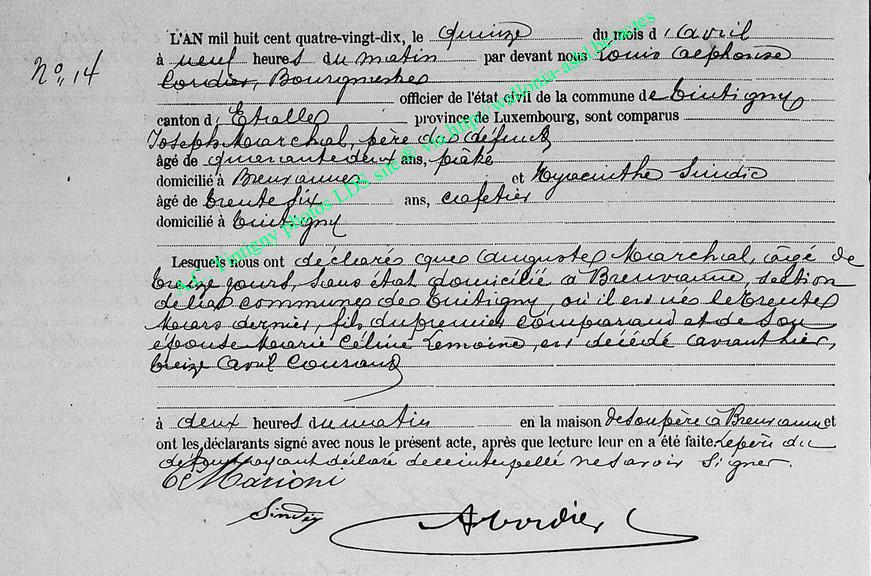 L'AN mil huit cent quatre-vingt-dix, le quinze du mois d'Avril
N° 14
à neuf heures du matin par devant nous Louis Alphonse
Cordier, Bourgmestre
officier de l'état civil de la commune de Tintigny
canton d'Etalle province de Luxembourg, sont comparus
Joseph Marchal, père du défunt
âgé de quarante deux ans, pâtre
domicilié à Breuvanne et Hyacinthe Sindic
âgé de trente six ans, cafetier
domicilié à Tintigny
Lesquels nous ont déclaré que Auguste Marchal, âgé de
treize jours, sans état domicilié à Breuvanne, section
de la commune de Tintigny, où il est né le trente
Mars dernier, fils du premier comparant et de son
épouse Marie Céline Lemoine, est décédé avant hier,
treize Avril courant
à deux heures du matin en la maison de son père à Breuvanne et
ont les déclarants signé avec nous le présent acte, après que lecture leur en a été faite le père du
défunt ayant déclaré de ce interpellé ne savoir signer.
Sindic
A Cordier
A.C. Tintigny photos LDS site © via http://wallonia-asbl.be/actes